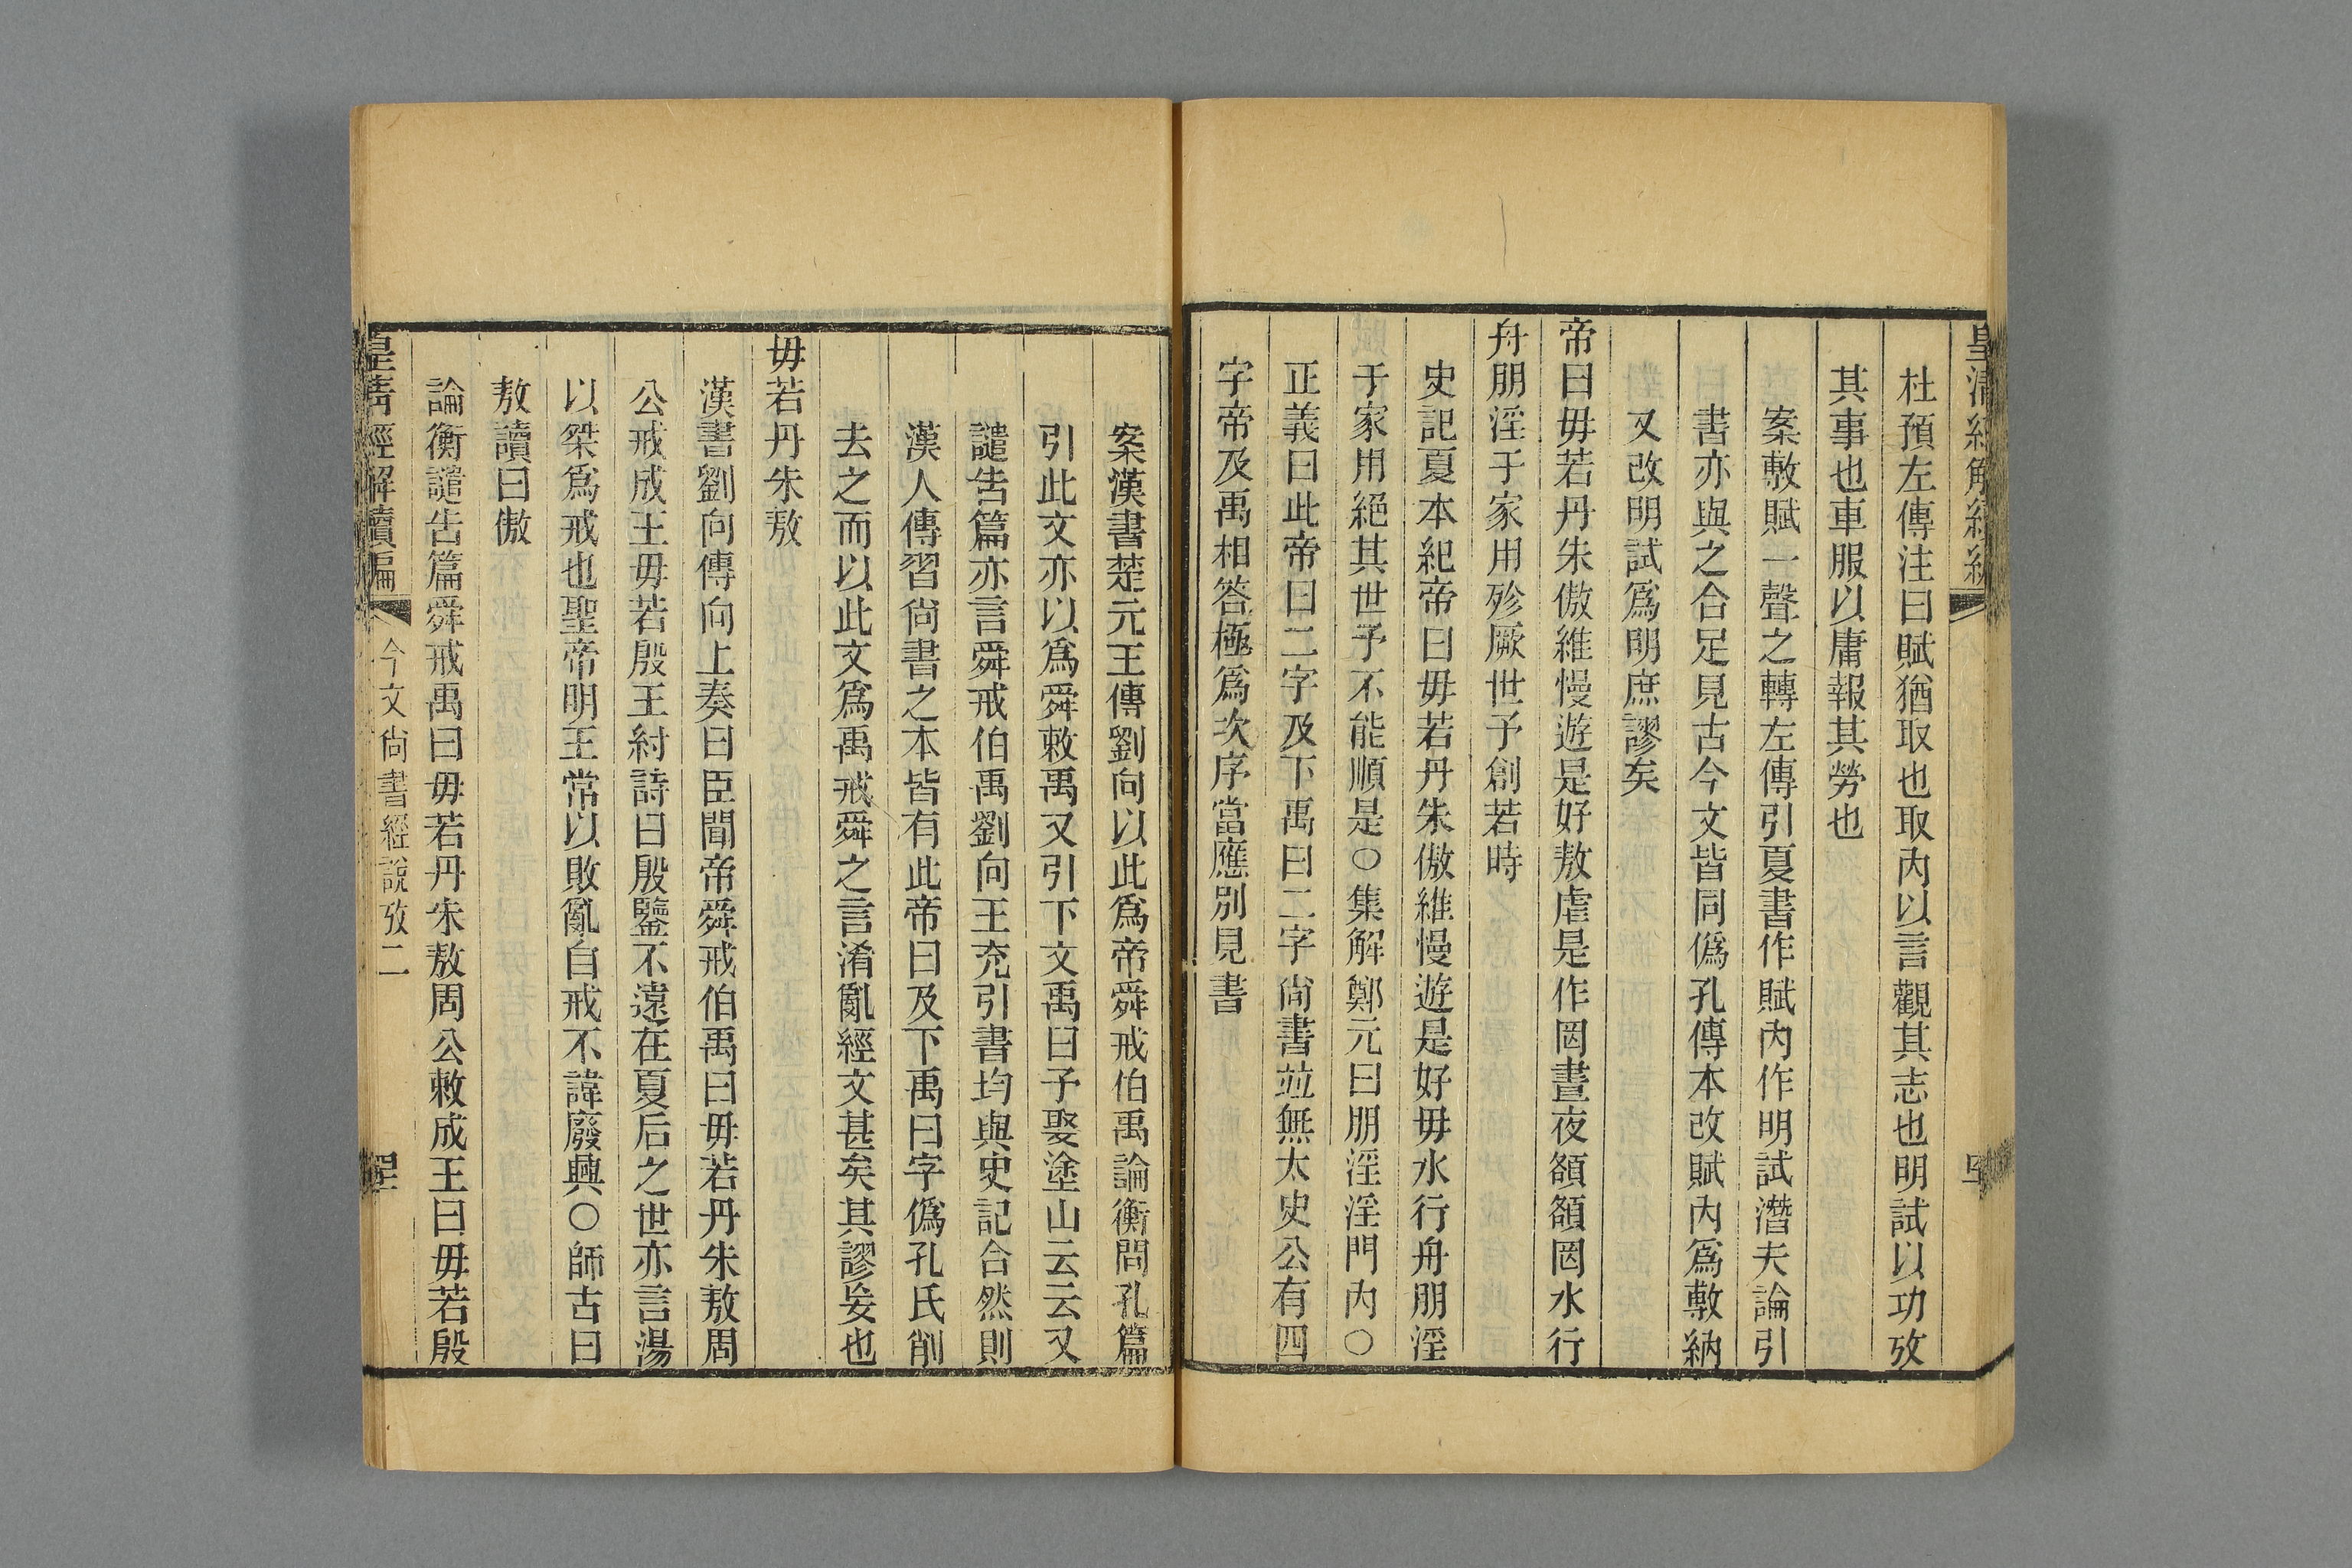 杜預左傳注曰賦猶取也取內以言觀其志也明試以功攷
其事也車服以庸報其勞也
案敷賦一聲之轉左傳引夏書作賦內作明試潛夫論引
書亦與之合足見古今文皆同僞孔傳本改賦內爲敷納
又改明試爲明庶謬矣
帝曰毋若丹朱傲維慢遊是好敖虐是作罔晝夜頟頟罔水行
舟朋淫于家用殄厥世予創若時
史記夏本紀帝曰毋若丹朱傲維慢遊是好毋水行舟朋淫
于家用絕其世予不能順是○集解鄭元曰朋淫淫門內○
正義曰此帝曰二字及下禹曰二字尙書竝無太史公有四
字帝及禹相答極爲次序當應別見書
案漢書楚元王傳劉向以此爲帝舜戒伯禹論衡問孔篇
引此文亦以爲舜敕禹又引下文禹曰予娶塗山云云又
譴吿篇亦言舜戒伯禹劉向王充引書均與史記合然則
漢人傳習尙書之本皆有此帝曰及下禹曰字僞孔氏削
去之而以此文爲禹戒舜之言淆亂經文甚矣其謬妄也
毋若丹朱敖
漢書劉向傳向上奏曰臣聞帝舜戒伯禹曰毋若丹朱敖周
公戒成王毋若殷王紂詩曰殷鑒不遠在夏后之世亦言湯
以桀爲戒也聖帝明王常以敗亂自戒不諱廢興○師古曰
敖讀曰傲
論衡譴告篇舜戒禹曰毋若丹朱敖周公敕成王曰毋若殷
皇淸經解續編 今文尙書經說攷二